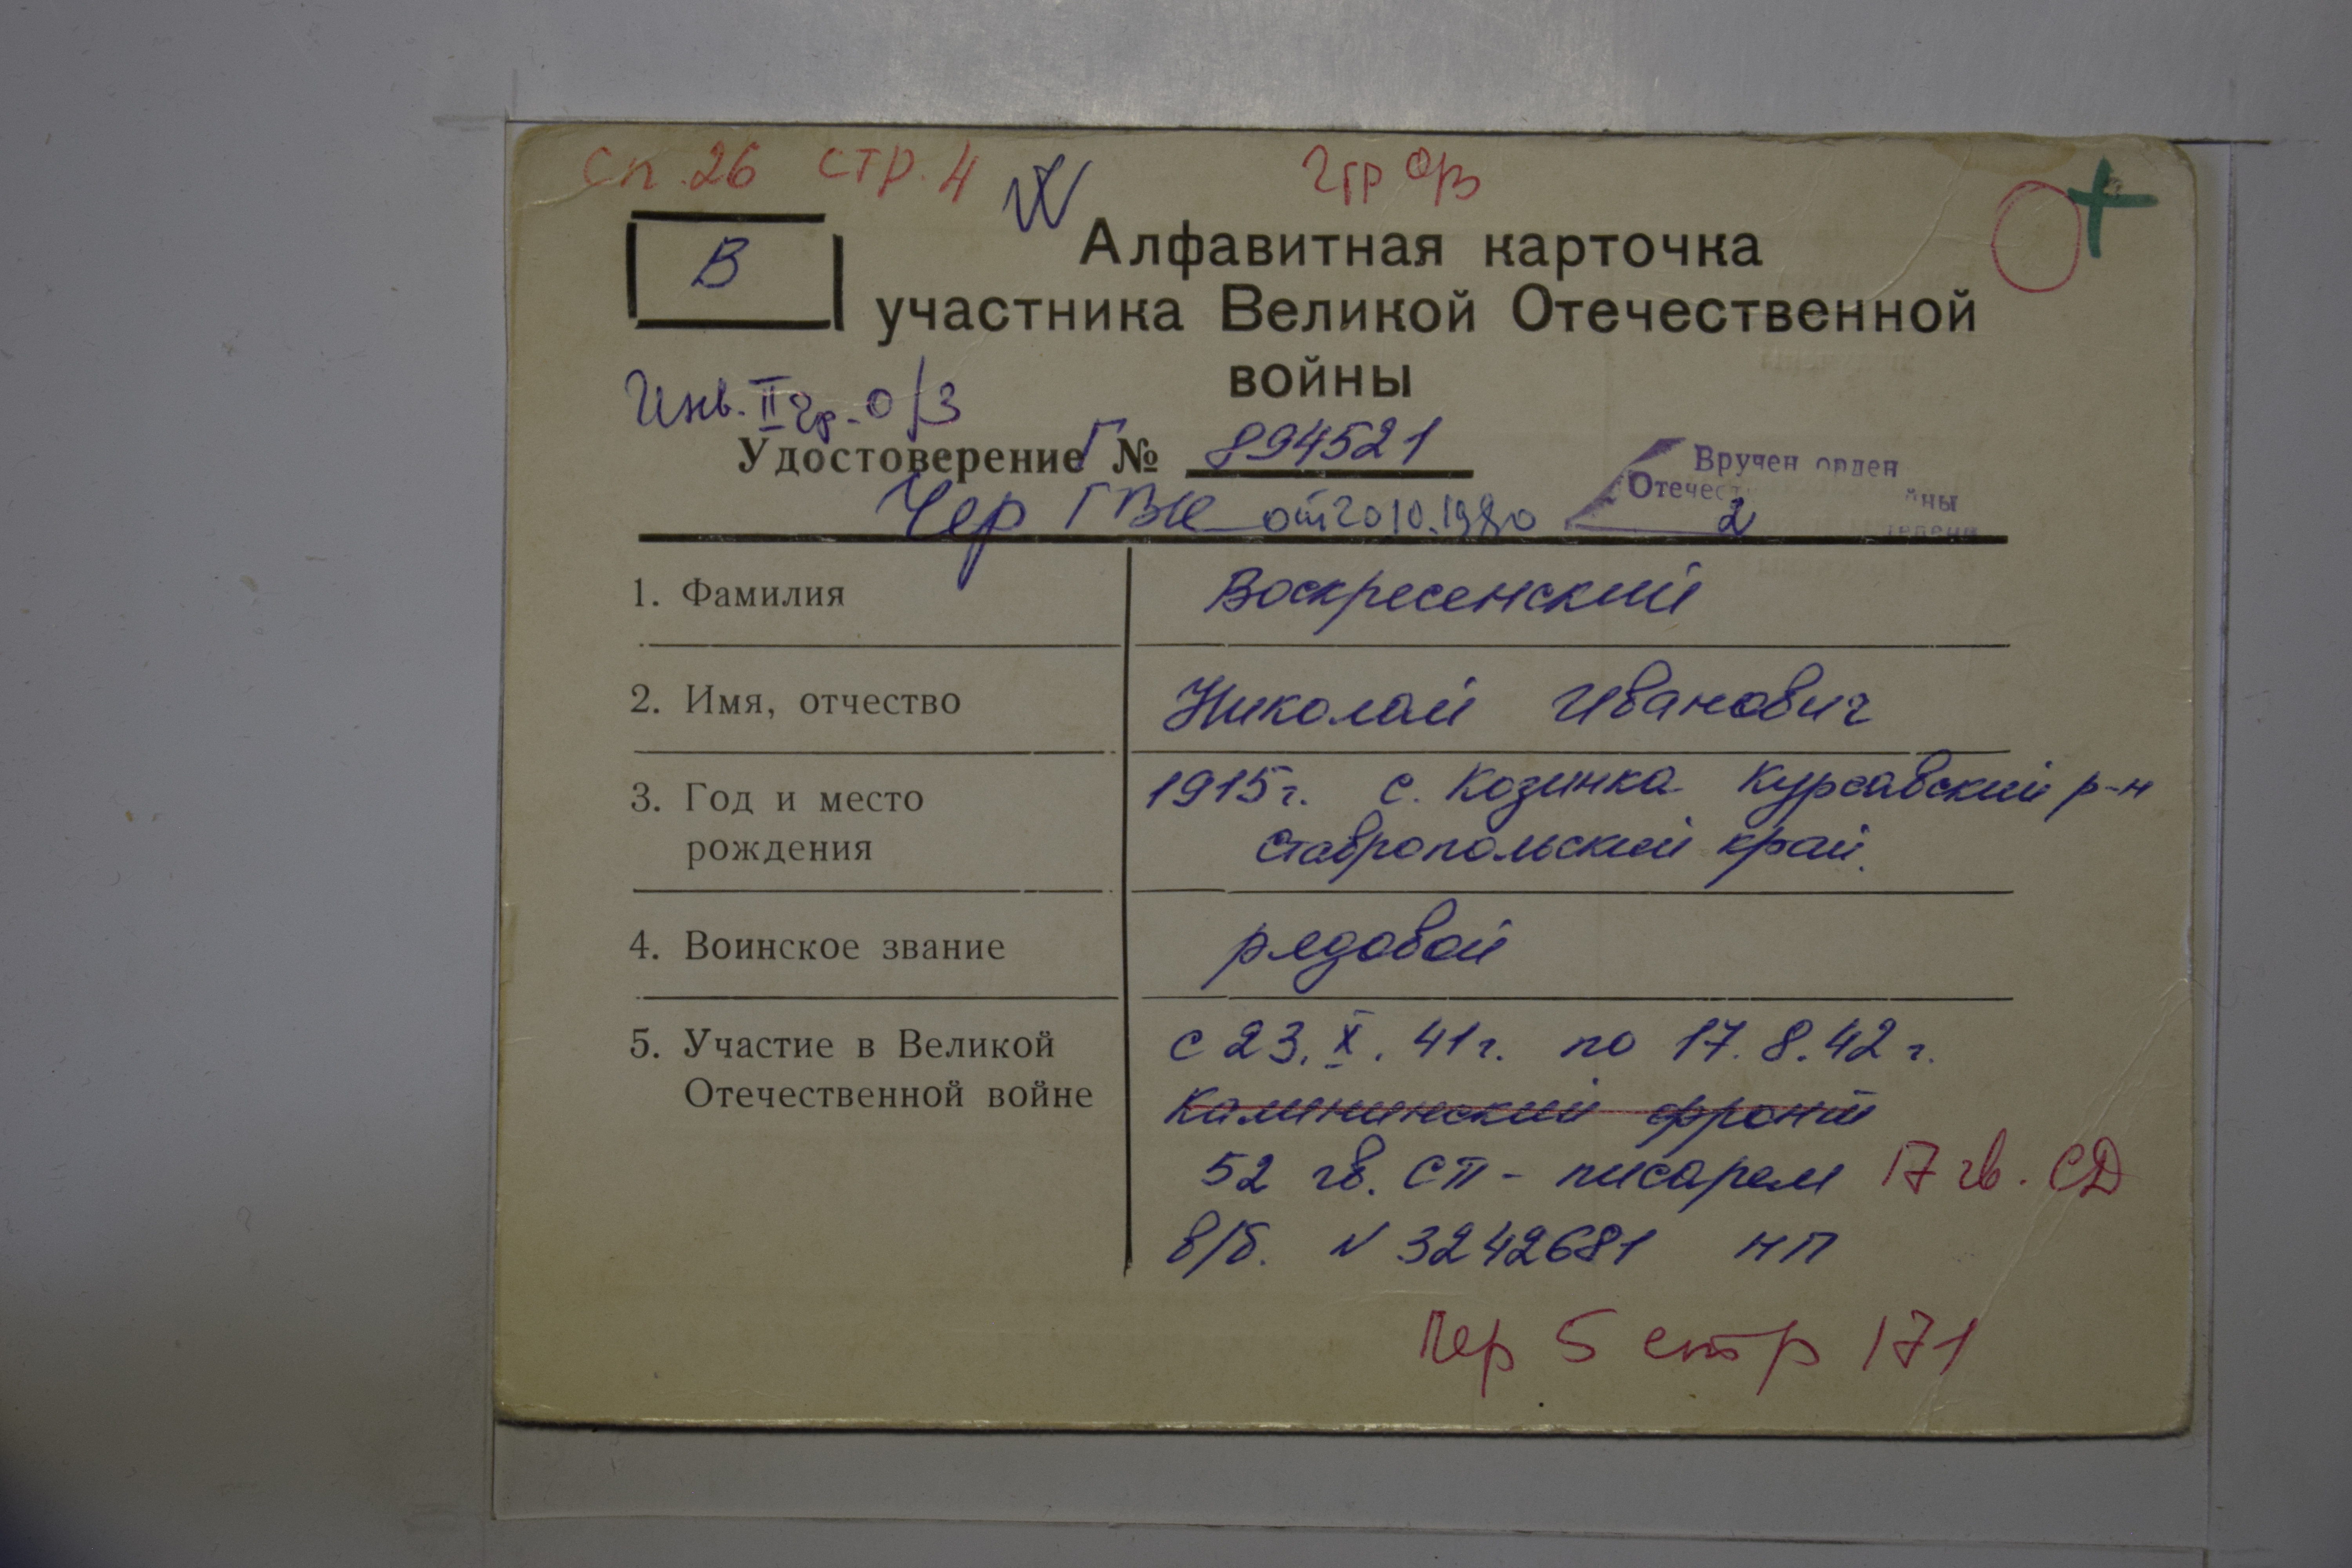 сп. 26 стр. 4
2гр о/з
В
Алфавитная карточка
участника Великой Отечественной
войны
Инв. II гр. о/з
Удостоверение Г № 894521
Чер ГВК от 20.10.1980
Вручен орден
Отечест йны
2 степени
1. Фамилия Воскресенский
2. Имя, отчество Николай Иванович
3. Год и место 1915г. с. Козинка Курсавский р-н
рождения Ставропольский край.
4. Воинское звание рядовой
5. Участие в Великой с 23.X.41г. по 17.8.42г.
Отечественной войне Калининский фронт
52 гв. сп - писарем 17 гв. СД
в/б. N 3242681 НП
Чер 5 стр 171